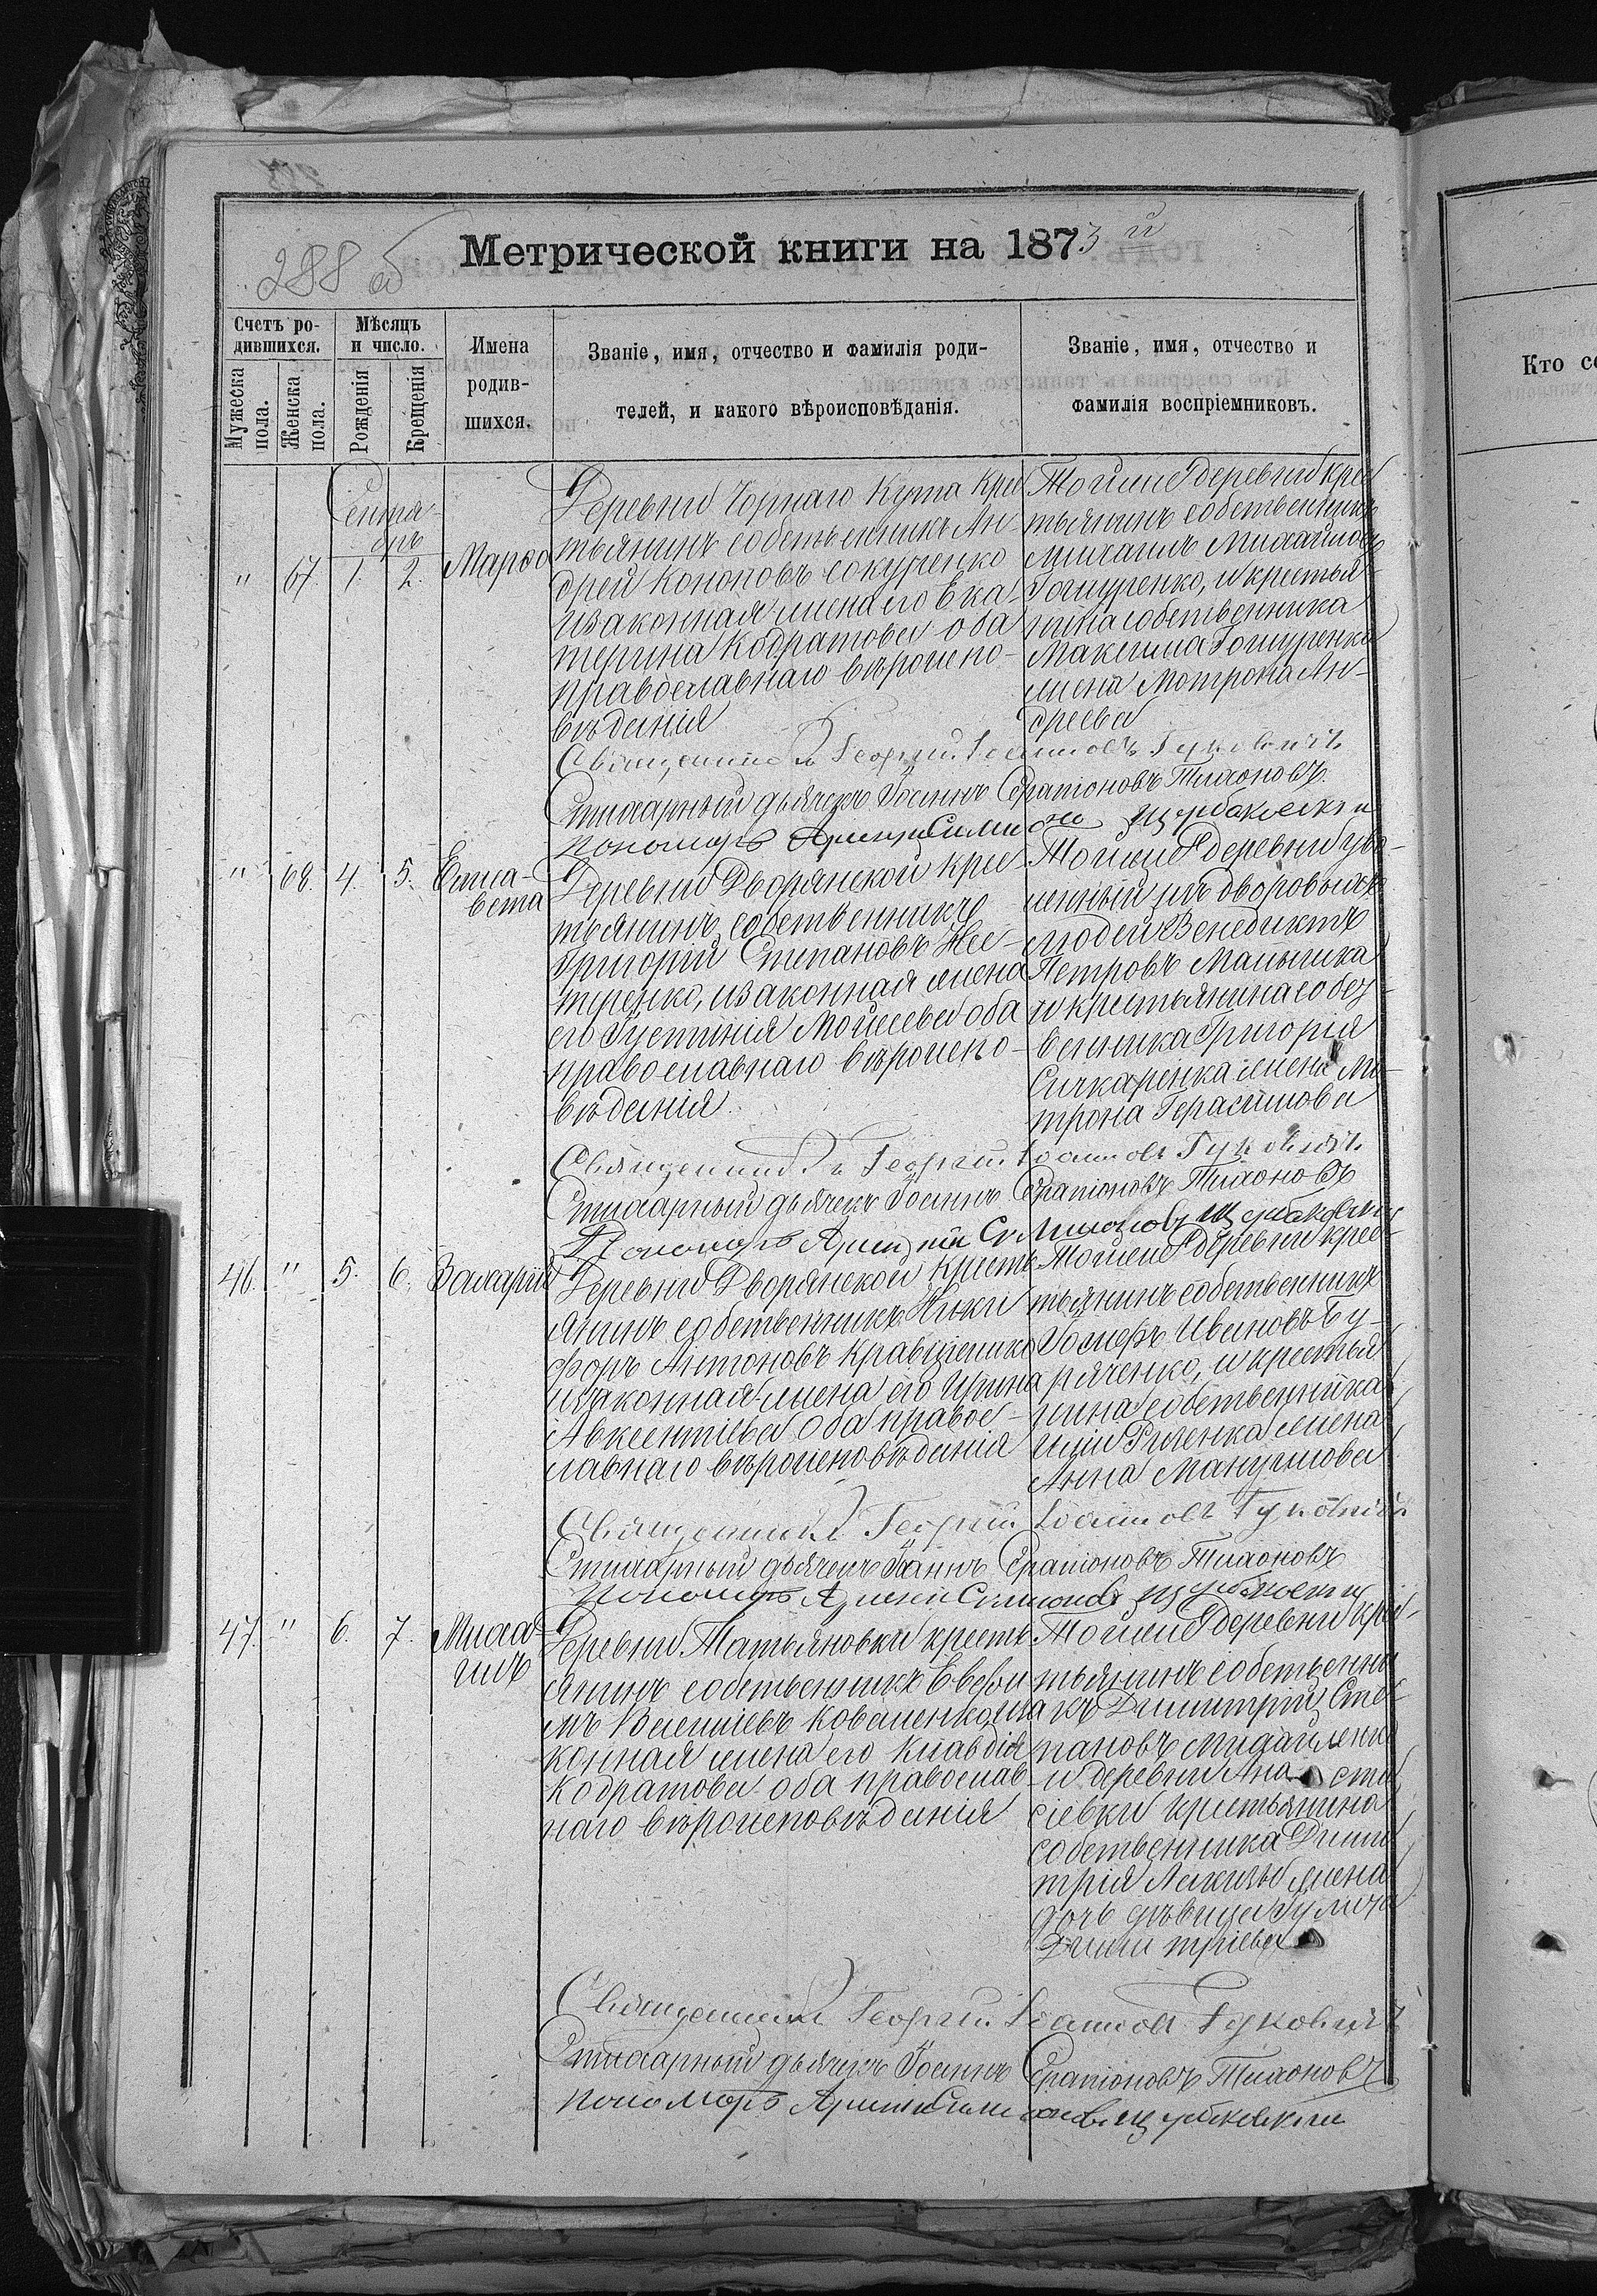 288 об
Метрической книги на 1873 й
Счетъ ро-
дившихся.
Мужеска
пола.
Женска
пола.
Мѣсяцъ
и число.
Рожденія
Крещенія
Имена
родив-
шихся.
Званіе, имя, отчество и фамилія роди-
телей, и какого вѣроисповѣданія.
Званіе, имя, отчество и
фамилія воспріемниковъ.
Кто со
Сентя-
брь
" 67. 1. 2.
Деревни Чорнаго Кута кре
стьянинъ собственникъ Ан-
дрей Кононовъ
и законная жена его Ека-
терина Кодратова оба
православнаго вѣроиспо-
вѣданія
Тойже деревни кре
стьянинъ собственникъ
Михаилъ Михайловъ
и крестья-
нина собственника
Максима
жена Мотрона Ан-
дреева
Священникъ Георгій Іоанновъ Гуковичъ
Стихарный дьячекъ Іоаннъ Серапіоновъ Тихоновъ
Пономарь
" 68. 4. 5. Елиса-
вета
Деревни Дворянской кре
стьянинъ собственникъ
Григорій Степановъ Нес-
теренко, и законная жена
его Іустинія Моисеева оба
православнаго вѣроиспо-
вѣданія
Тойже деревни уво-
ленный изъ дворовыхъ
людей Венедиктъ
Петровъ
и крестьянина собст-
венника Григорія
жена Мо-
трона Герасимова
Священникъ Георгій Іоанновъ Гуковичъ
Стихарный дьячекъ Іоаннъ Серапіоновъ Тихоновъ
Пономарь
46. " 5. 6. Валарій
Деревни Дворянской кресть
янинъ собственникъ Ники
форъ Антоновъ Кравченко
и законная жена его Ирина
Авксентіева оба правос-
лавнаго вѣроисповѣданія
Тойже деревни крес-
тьянинъ собственникъ
Іосифъ Ивановъ Бу-
ряченко, и крестья-
нина собственника
жена
Анна Мануилова
Священникъ Георгій Іоанновъ Гуковичъ
Стихарный дьячекъ Іоаннъ Серапіоновъ Тихоновъ
Пономарь
47. " 6. 7. Миха-
илъ
Деревни Татьяновки кресть
янинъ собственникъ Евѳи
мъ Василіевъ Коваленко, и за
конная жена его Клавдія
Кодратова оба православ-
наго вѣроисповѣданія
Тойже деревни кре-
стьянинъ собственни
къ Димитрій Сте
пановъ Михайленко
и деревни Ана ста
сіевки крестьянина
собственника Дими
трія жена
дочь дѣвица
Димитріева
Священникъ Георгій Іоанновъ Гуковичъ
Стихарный дьячекъ Іоаннъ Серапіоновъ Тихоновъ
Пономарь